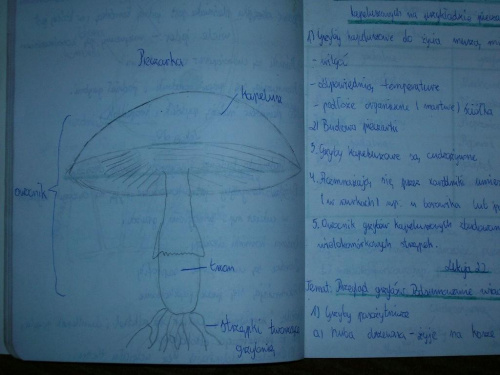 Pieczarka
kapelusz
owocnik
trzon
strzępki tworzące
grzybnię
kapeluszowych na przykładzie
1) Grzyby kapeluszowe do życia muszą
- wilgoć
- odpowiednią temperaturę
- podłoże organiczne (martwe) ściółka
2) Budowa pieczarki
3. Grzyby kapeluszowe są cudzożywne.
4. Rozmnażają się przez zarodniki
(w workach) np. u borowika lub
5. Owocnik grzybów kapeluszowych zbudowany
wielokomórkowych strzępek.
Lekcja 22
Temat: Przegląd grzybów. Podsumowanie
1) Grzyby pasożytnicze
a) Huba drzewna - żyje na korze